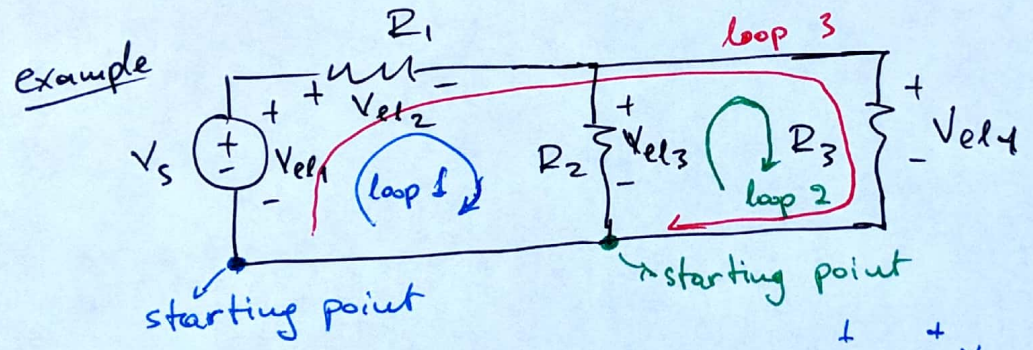 R₁
loop 3
example
+ Vel2 -
+
Vs
+
-
Vel1
-
loop 1
R2
+
Vel3
-
R3
loop 2
+
Vel4
-
starting point
starting point
+ +